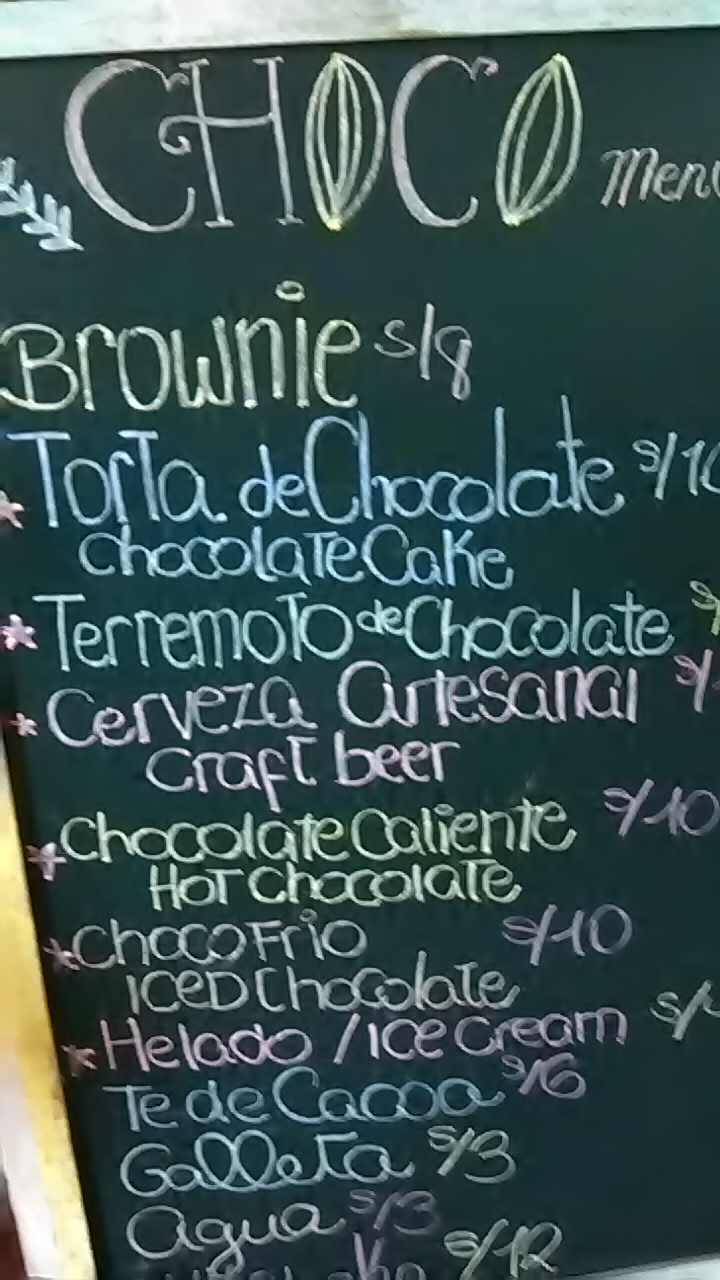 CHOCO
Brownie s/8
Torta de Chocolate
chocolate Cake
* Terremoto de Chocolate
* Cerveza Artesanal
craft beer
* Chocolate Caliente s/10
Hot Chocolate
* Choco Frio s/10
Iced Chocolate
* Helado / Ice Cream
Te de Cacao s/6
Galleta s/3
Agua s/3
s/12